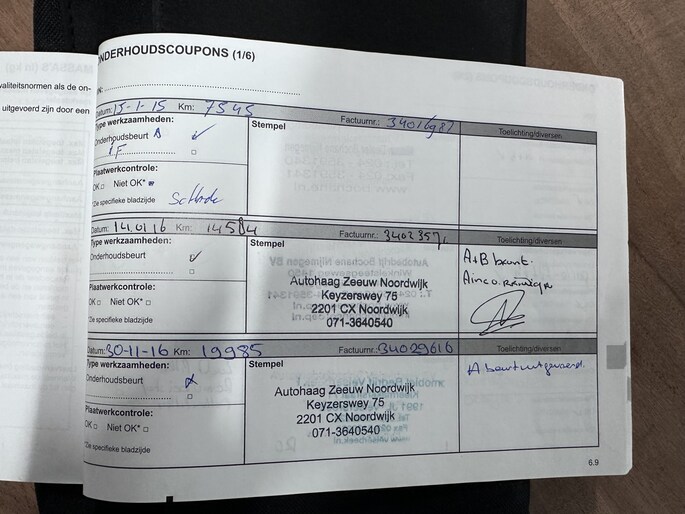 valiteitsnormen als de on-
uitgevoerd zijn door een
ONDERHOUDSCOUPONS (1/6)
Datum: 15-1-15 Km: 7545 Factuurnr.: 34016987
Type werkzaamheden:
Stempel
Toelichting/diversen
Onderhoudsbeurt A ✓
Plaatwerkcontrole:
OK □ Niet OK*
Schade
*De specifieke bladzijde
Datum: 14.01.16 Km: 14584 Factuurnr.: 34023571
Type werkzaamheden:
Stempel
Toelichting/diversen
Onderhoudsbeurt ✓
A+B beurt.
Autohaag Zeeuw Noordwijk
Keyzerswey 75
2201 CX Noordwijk
071-3640540
Plaatwerkcontrole:
OK □ Niet OK* □
*De specifieke bladzijde
Datum: 30-11-16 Km: 19985 Factuurnr.: 34029616
Type werkzaamheden:
Stempel
Toelichting/diversen
Onderhoudsbeurt
A beurt uitgevoerd.
Autohaag Zeeuw Noordwijk
Keyzerswey 75
2201 CX Noordwijk
071-3640540
Plaatwerkcontrole:
OK □ Niet OK* □
*De specifieke bladzijde
6.9